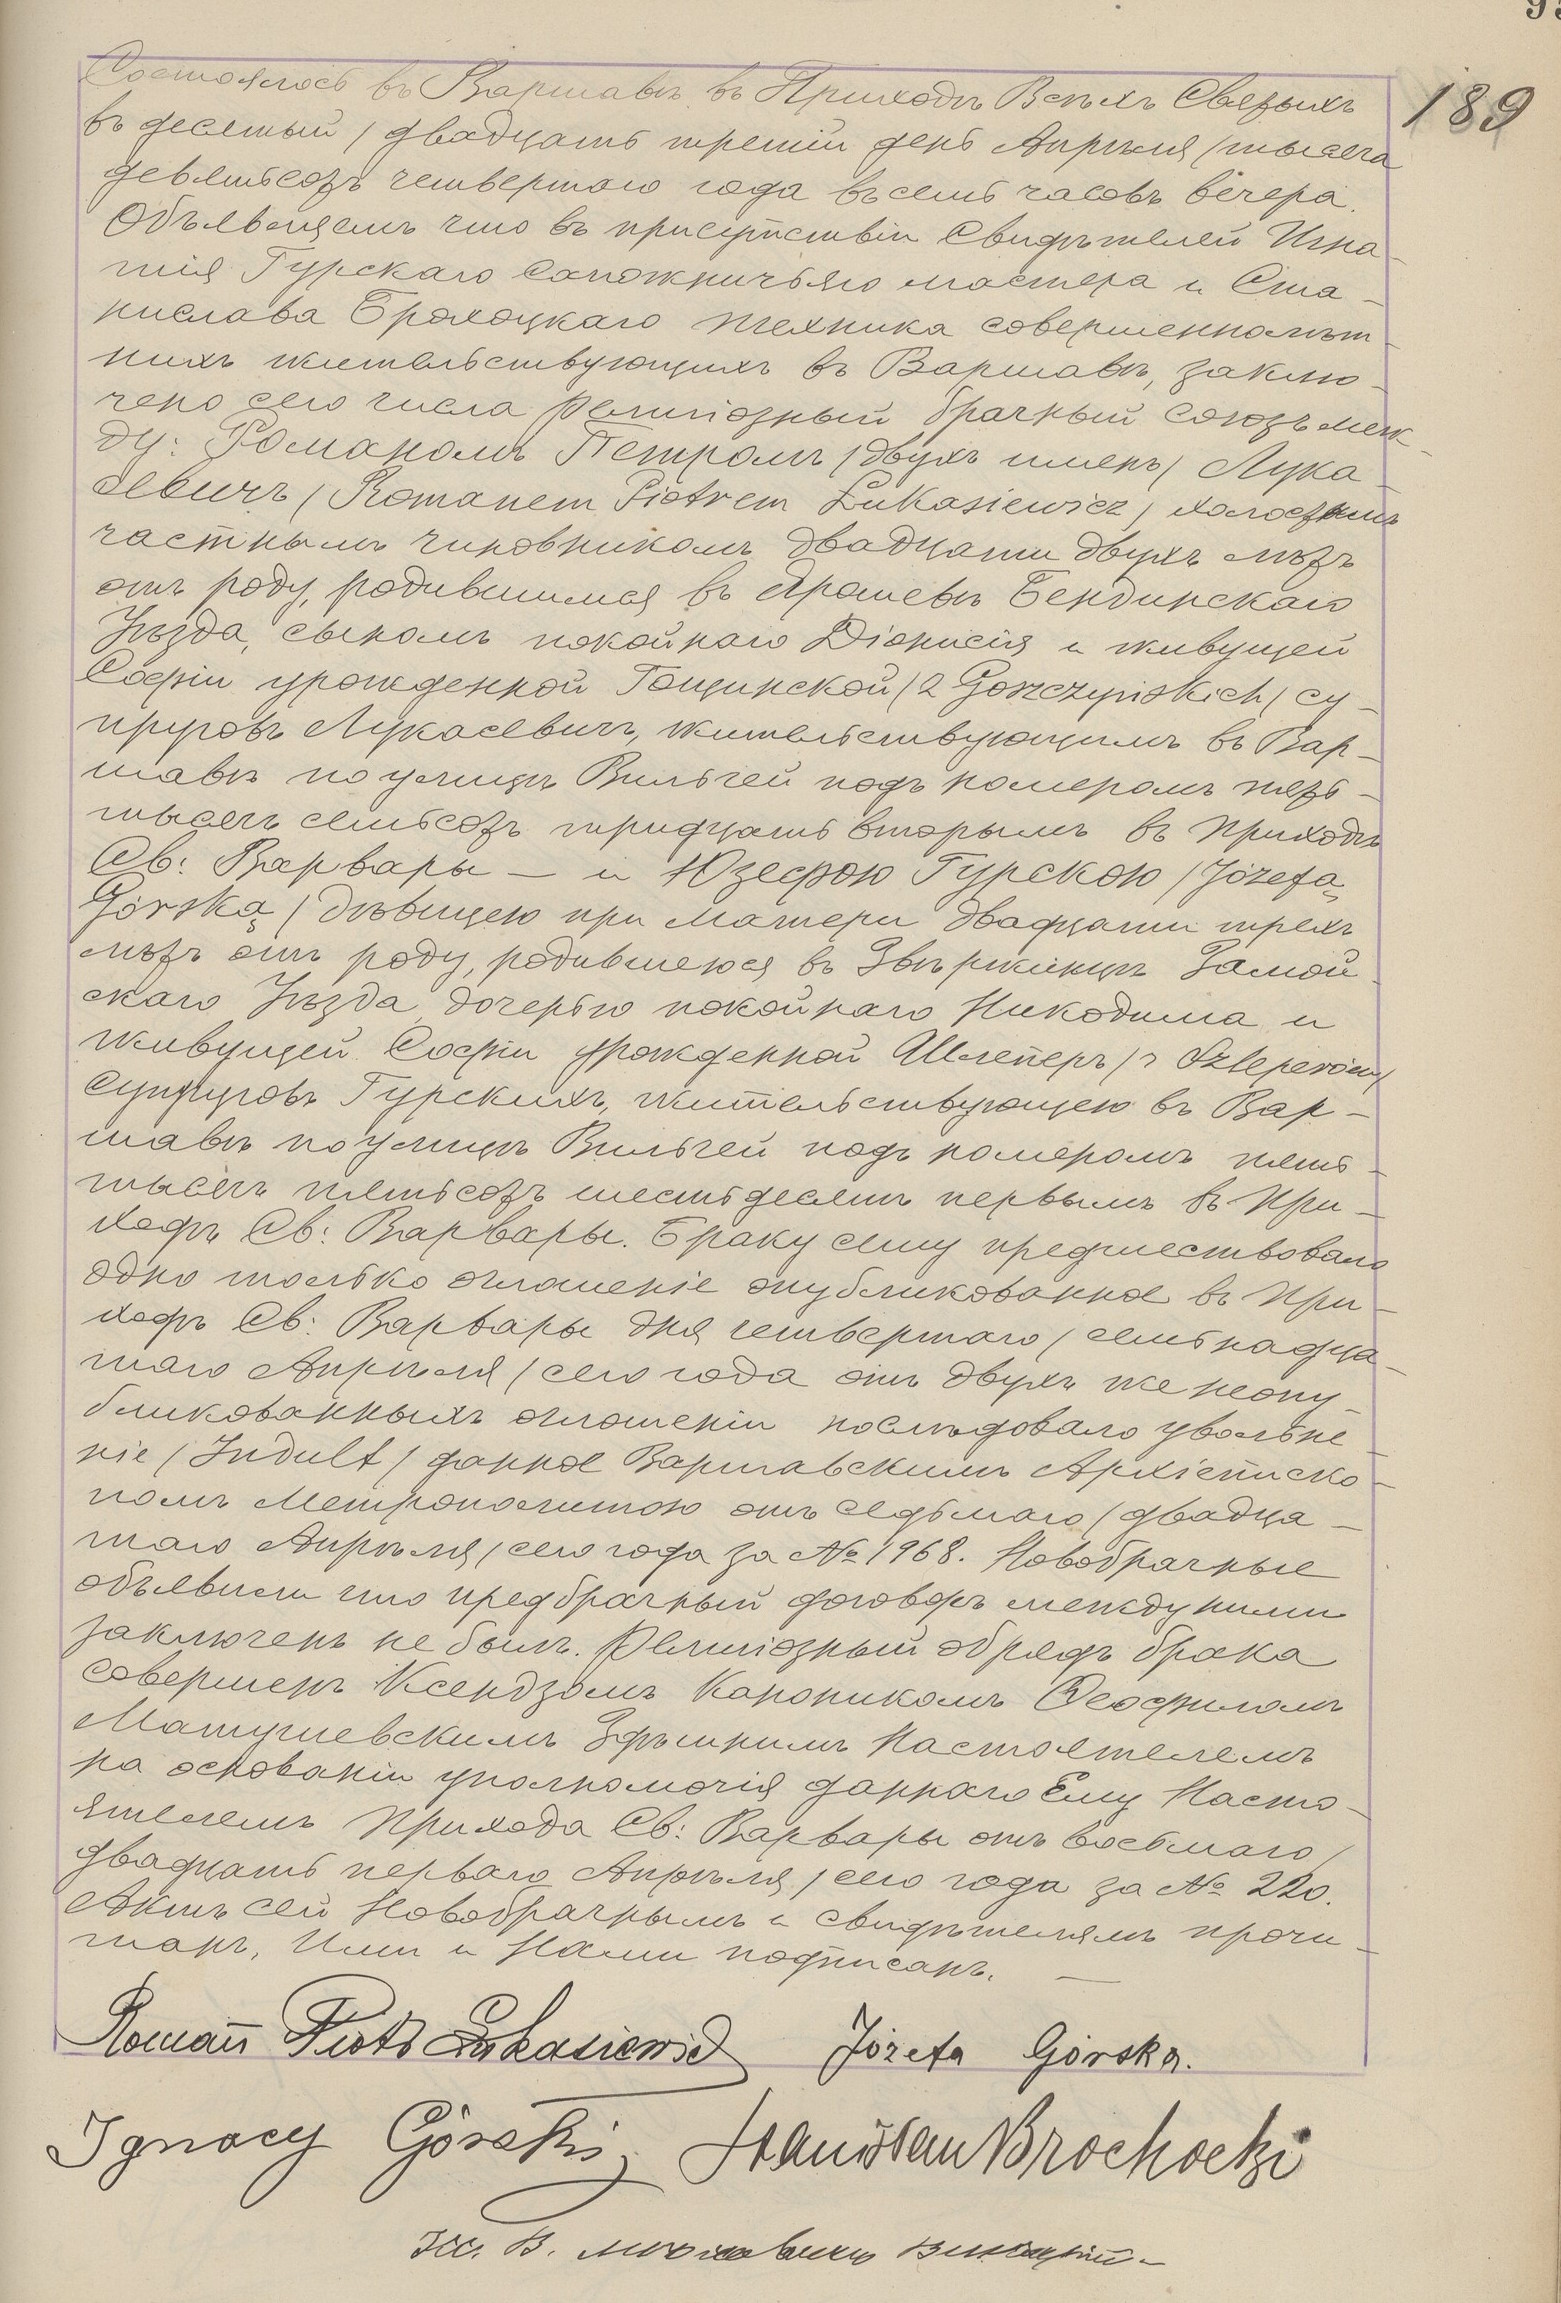 189
Состоялось въ Варшавѣ въ Приходѣ Всѣхъ Святыхъ
въ десятый / двадцать третій день Апрѣля / тысяча
девятьсотъ четвертого года въ семь часовъ вечера.
Объявляемъ что въ присутствіи Свидѣтелей Игна-
тія Гурскаго Сапожничьяго мастера и Ста-
нислава Брохоцкаго техника совершеннолѣт-
нихъ жительствующихъ въ Варшавѣ, заклю-
чено сего числа религіозный брачный союзъ меж-
ду: Романомъ Петромъ / двухъ именъ / Лука-
севичъ / Romanem Piotrem Łukasiewicz / холостымъ
частнымъ чиновникомъ двадцати двухъ лѣтъ
отъ роду, родившимся въ Ярошевѣ Бендинскаго
Уѣзда, сыномъ покойнаго Діонисія и живущей
Софіи урожденной Гощинской / z Goszczyńskich / су-
пруговъ Лукасевичъ, жительствующимъ въ Вар-
шавѣ по улицѣ Вильчей подъ номеромъ пять-
тысячъ семьсотъ тридцать вторымъ въ приходѣ
Св: Варвары — и Юзефою Гурскою / Józefą
Górską / дѣвицею при матери двадцати трехъ
лѣтъ отъ роду, родившеюся въ Звѣржинцѣ Замой-
скаго Уѣзда дочерью покойнаго Никодима и
живущей Софіи урожденной Шлеперъ /
Супруговъ Гурскихъ, жительствующею въ Вар-
шавѣ по улицѣ Вильчей подъ номеромъ пять-
тысячъ пятьсотъ шестьдесятъ первымъ въ При-
ходѣ Св: Варвары. Браку сему предшествовало
одно только оглашеніе опубликованное въ При-
ходѣ Св: Варвары дня четвертаго / семьнадца-
таго Апрѣля / сего года отъ двухъ же неопу-
бликованныхъ оглашеніи послѣдовало увольне-
ніе / Indult / данное Варшавскимъ Архіеписко-
помъ Метрополитою отъ седьмаго / двадца-
таго Апрѣля / сего года за № 1968. Новобрачные
объявили что предбрачный договоръ между ними
заключенъ не былъ. Религіозный обрядъ брака
совершенъ Ксендзомъ Каноникомъ Ѳеофиломъ
Матушевскимъ Здѣшнимъ Настоятелемъ
на основаніи уполномочія даннаго Ему Насто-
ятелемъ Прихода Св: Варвары отъ восьмаго /
двадцать перваго Апрѣля / сего года за № 220.
Актъ сей Новобрачнымъ и свидѣтелямъ прочи-
танъ, Ими и Нами подписанъ. —
Roman Piotr Łukasiewicz Józefa Górska.
Ignacy Górski Stanisław Brochocki
Кс. В.